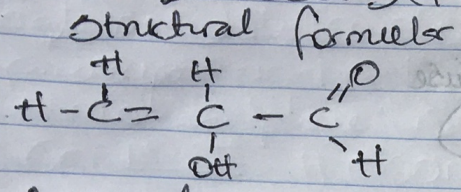 Structural formular
H H O
H - C = C - C
OH H